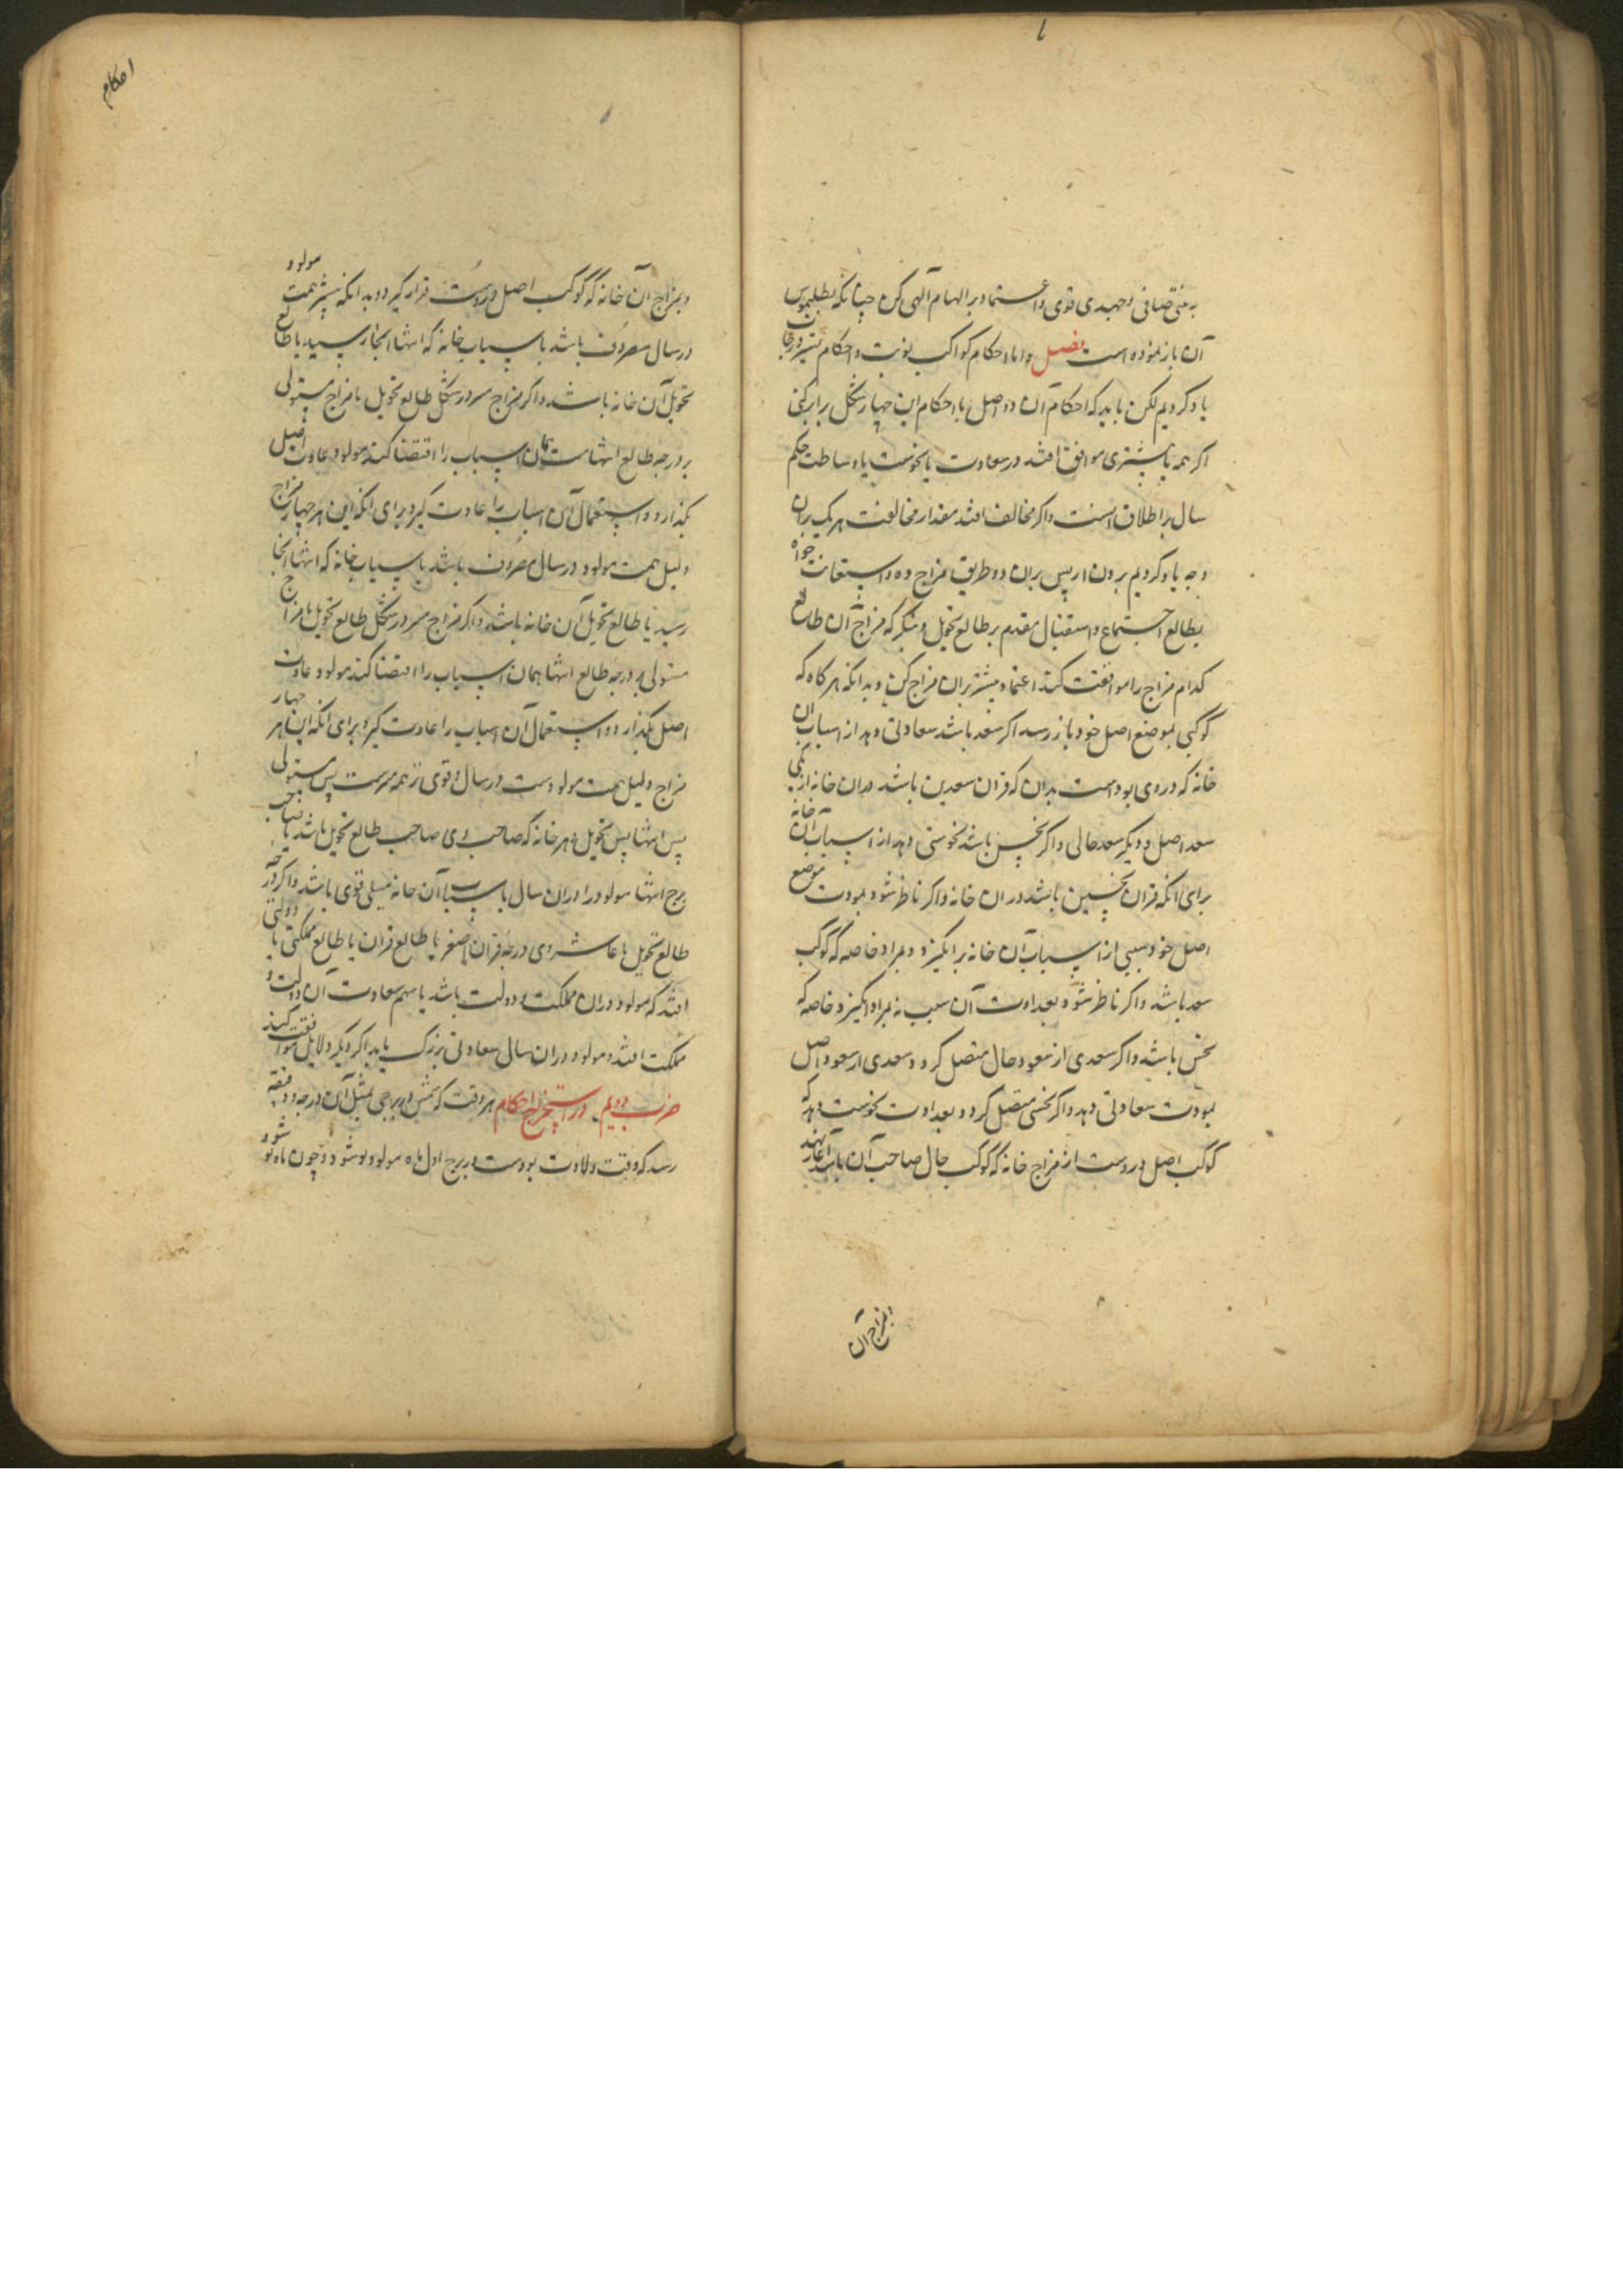 به ذهنی صافی و جهدی قوی و اعتماد بر الهام الهی کن چنانکه بطلیموس
آن باز نموده است فصل و اما احکام کواکب نوبت و احکام تسییر درجات
یاد کردیم لکن باید که احکام آن دو اصل با احکام این چهار شکل برابر کنی
اگر همه یا بیشتری موافق افتد در سعادت یا نحوست یا وساطت حکم
سال بر اطلاق است و اگر مخالف افتد مقدار مخالفت هریک بران
وجه یاد کردیم برون ار پس بران دو طریق مزاج ده و استعانت خواه
بطالع اجتماع و استقبال مقدم بر طالع تحویل و بنگر که مزاج آن طالع
کدام مزاج را موافقت کند اعتماد بیشتر بران مزاج کن و بدانکه هرگاه که
کوکبی بموضع اصل خود باز رسد اگر سعد باشد سعادتی دهد از اسباب آن
خانه که در وی بودست بدان که قران سعدین باشد دران خانه از یکی
سعد اصل و دیگر سعد حالی و اگر نحس باشد نحوستی دهد از اسباب آن خانه
برای انکه قران نحسین باشد دران خانه و اگر ناظر شود بمودت موضع
اصل خود سببی از اسباب آن خانه برانگیزد و بمراد خاصه که کوکب
سعد باشد و اگر ناظر شود بعداوت آن سبب نه بمراد انگیزد خاصه که
نحس باشد و اگر سعدی از سعود حال متصل گردد و سعدی از سعود اصل
بمودت سعادتی دهد و اگر نحسی متصل گردد بعداوت نحوست دهد که
کوکب اصل دروست از مزاج خانه که کوکب حال صاحب آن باشد آغاز نهند
بمزاج آن
احکام
و بمزاج آن خانه که کوکب اصل دروست قرار گیرد و بدانکه بیشتر همت مولود
در سال مصروف باشد باسباب خانه که انتها انجا رسید یا طالع
تحویل آن خانه باشد و اگر مزاج سر در شکل طالع تحویل با مزاج مستولی
بر درجه طالع انتهاست همان اسباب را اقتضا کند مولود عادت اصیل
بگذارد و استعمال آن اسباب را عادت گیرد برای انکه این هر چهار مزاج
دلیل همت مولود در سال مصروف باشد باسباب خانه که انتها انجا
رسید یا طالع تحویل آن خانه باشد و اگر مزاج سر در شکل طالع تحویل با مزاج
مستولی بر درجه طالع انتها همان اسباب را اقتضا کند مولود عادت
اصل بگذارد و استعمال آن اسباب را عادت گیرد برای انکه این هر چهار
مزاج دلیل همت مولودست در سال و قوی تر همه سرست پس مستولی
پس انتها پس تحویل و هر خانه که صاحب وی صاحب طالع تحویل باشد یا صاحب
برج انتها مولود را دران سال باسباب آن خانه میلی قوی باشد و اگر درجه
طالع تحویل یا عاشر وی درجه قران اصغر یا طالع قران یا طالع مملکتی یا دولتی
افتد که مولود دران مملکت و دولت باشد یا سهم سعادت آن دولت و
مملکت افتد و مولود دران سال سعادتی بزرگ یابد اگر دیگر دلایل موافقت کند
ضرب دویم در استخراج احکام هر وقت که شمس در برجی بمثل آن درجه و دقیقه
رسد که وقت ولادت بودست در برج اول ماه مولود نو شود و چون ماه نو شود